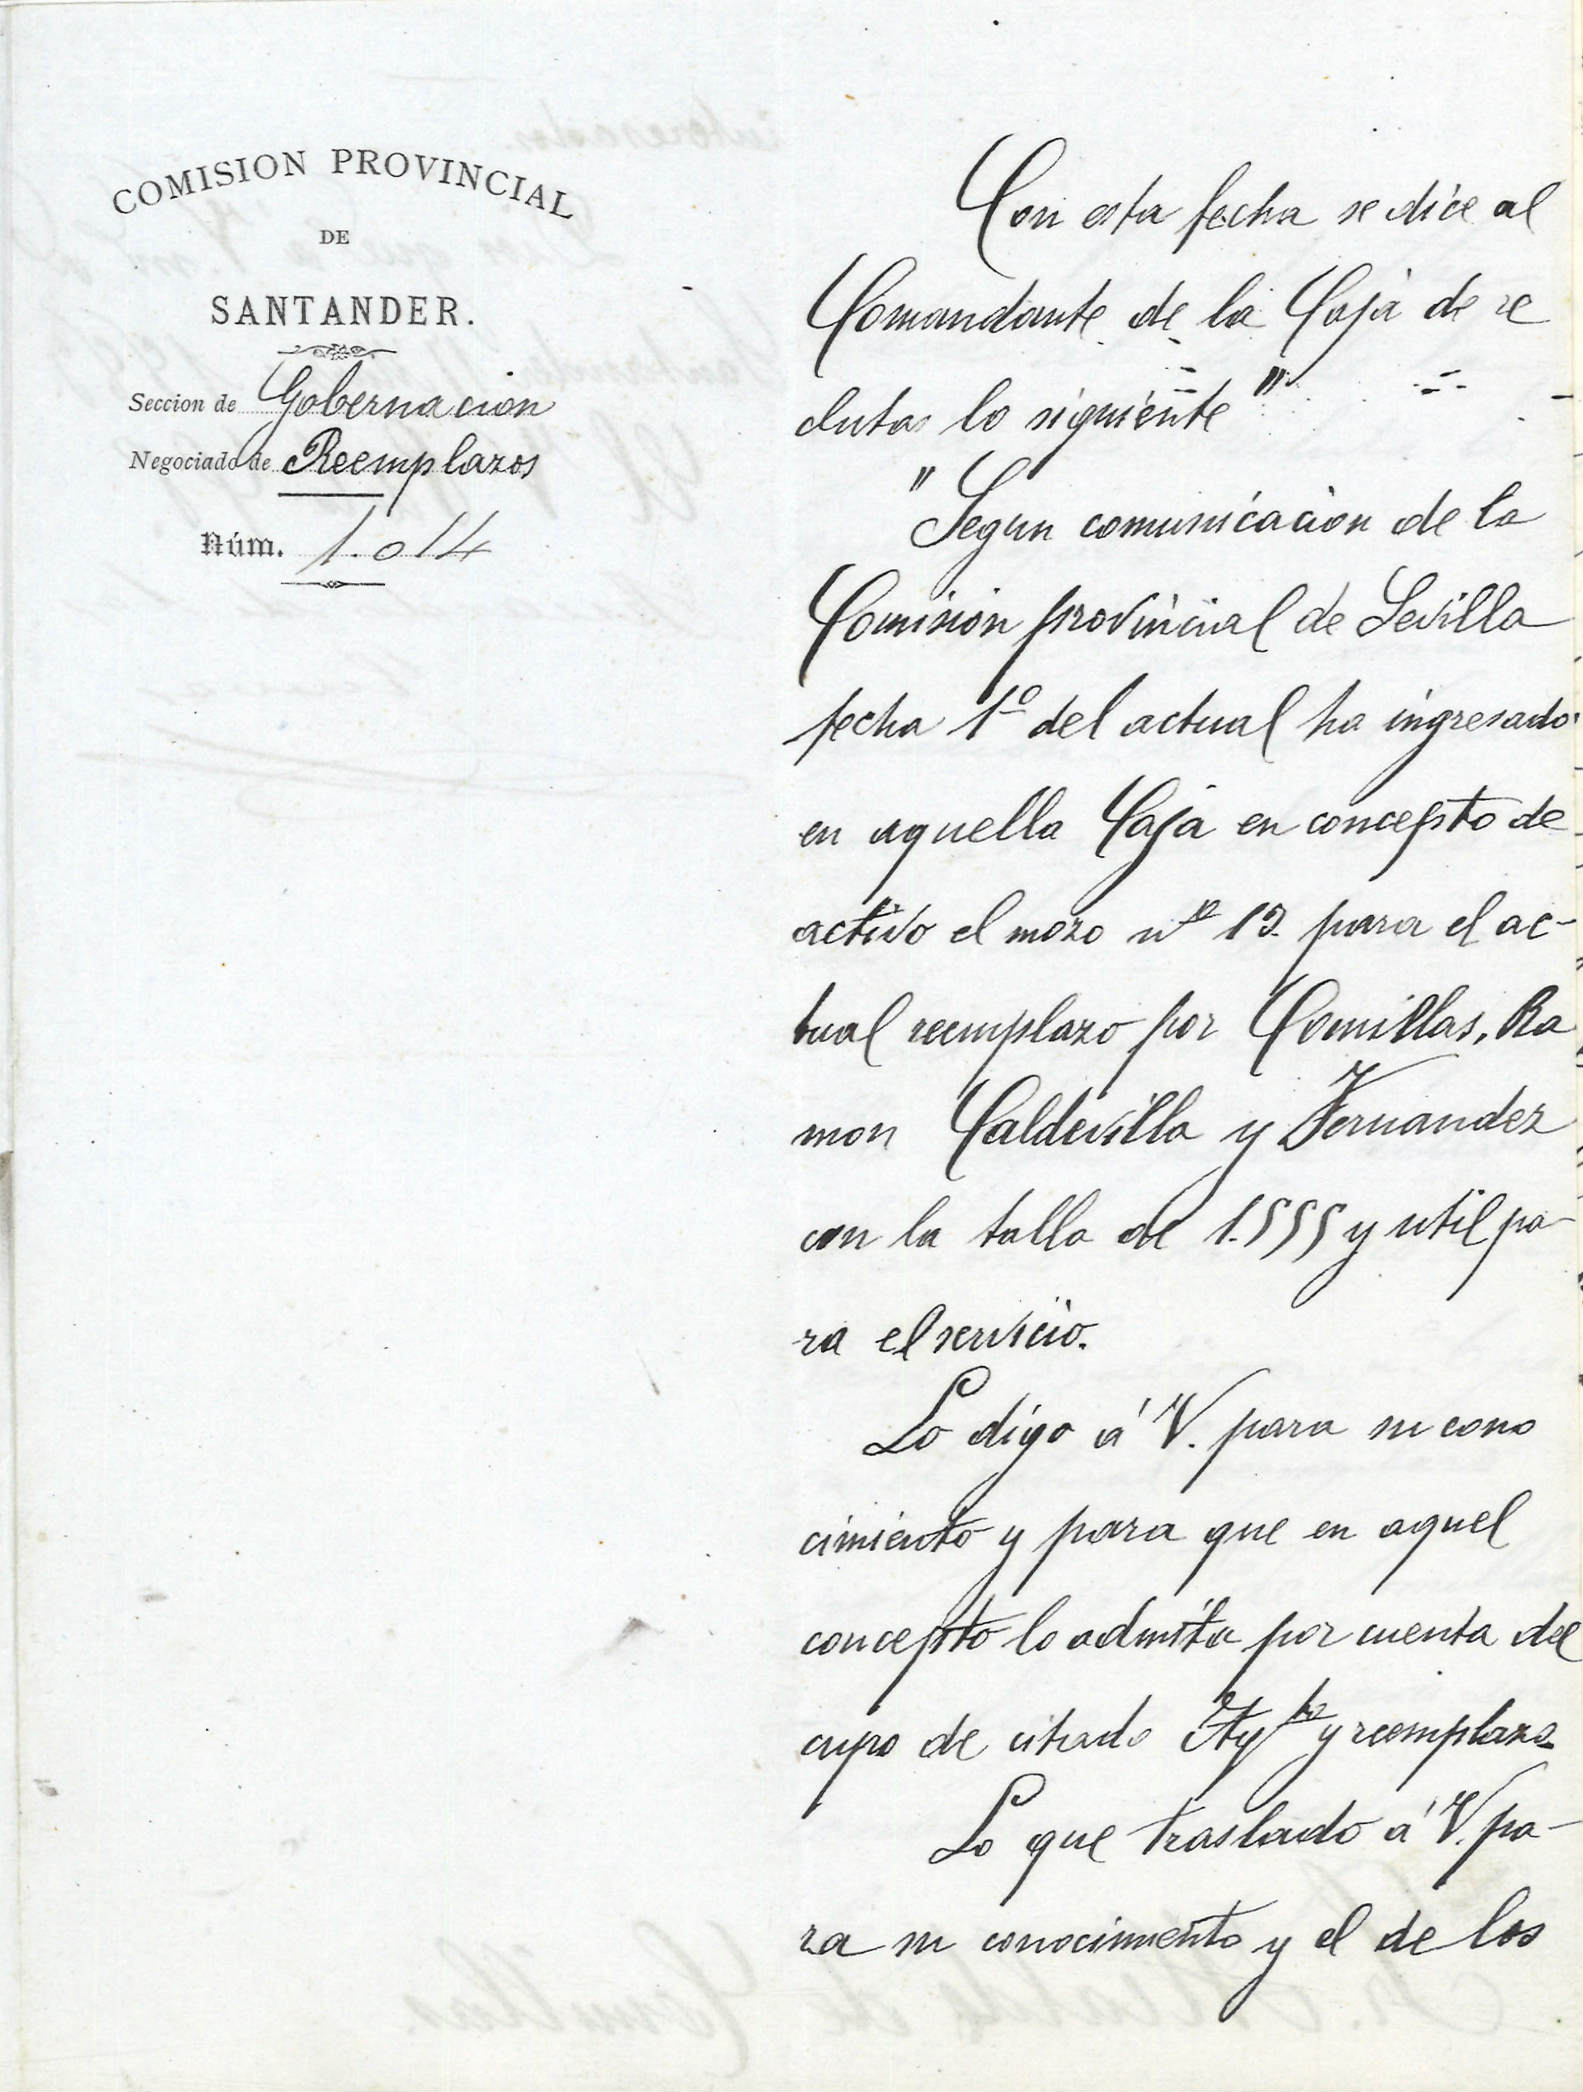 COMISION PROVINCIAL
DE
SANTANDER.
Seccion de Gobernacion
Negociado de Reemplazos
Núm. 1.014
Con esta fecha se dice al
Comandante de la Caja de re
clutas lo siguiente"
"Segun comunicacion de la
Comision provincial de Sevilla
fecha 1º del actual ha ingresado
en aquella Caja en concepto de
activo el mozo nº 12 para el ac-
tual reemplazo por Comillas, Ra
mon Caldevilla y Fernandez
con la talla de 1.555 y util pa-
ra el servicio.
Lo digo á V. para su cono
cimiento y para que en aquel
concepto lo admita por cuenta del
cupo de citado Ayto y reemplazo
Lo que traslado á V. pa-
ra su conocimiento y el de los